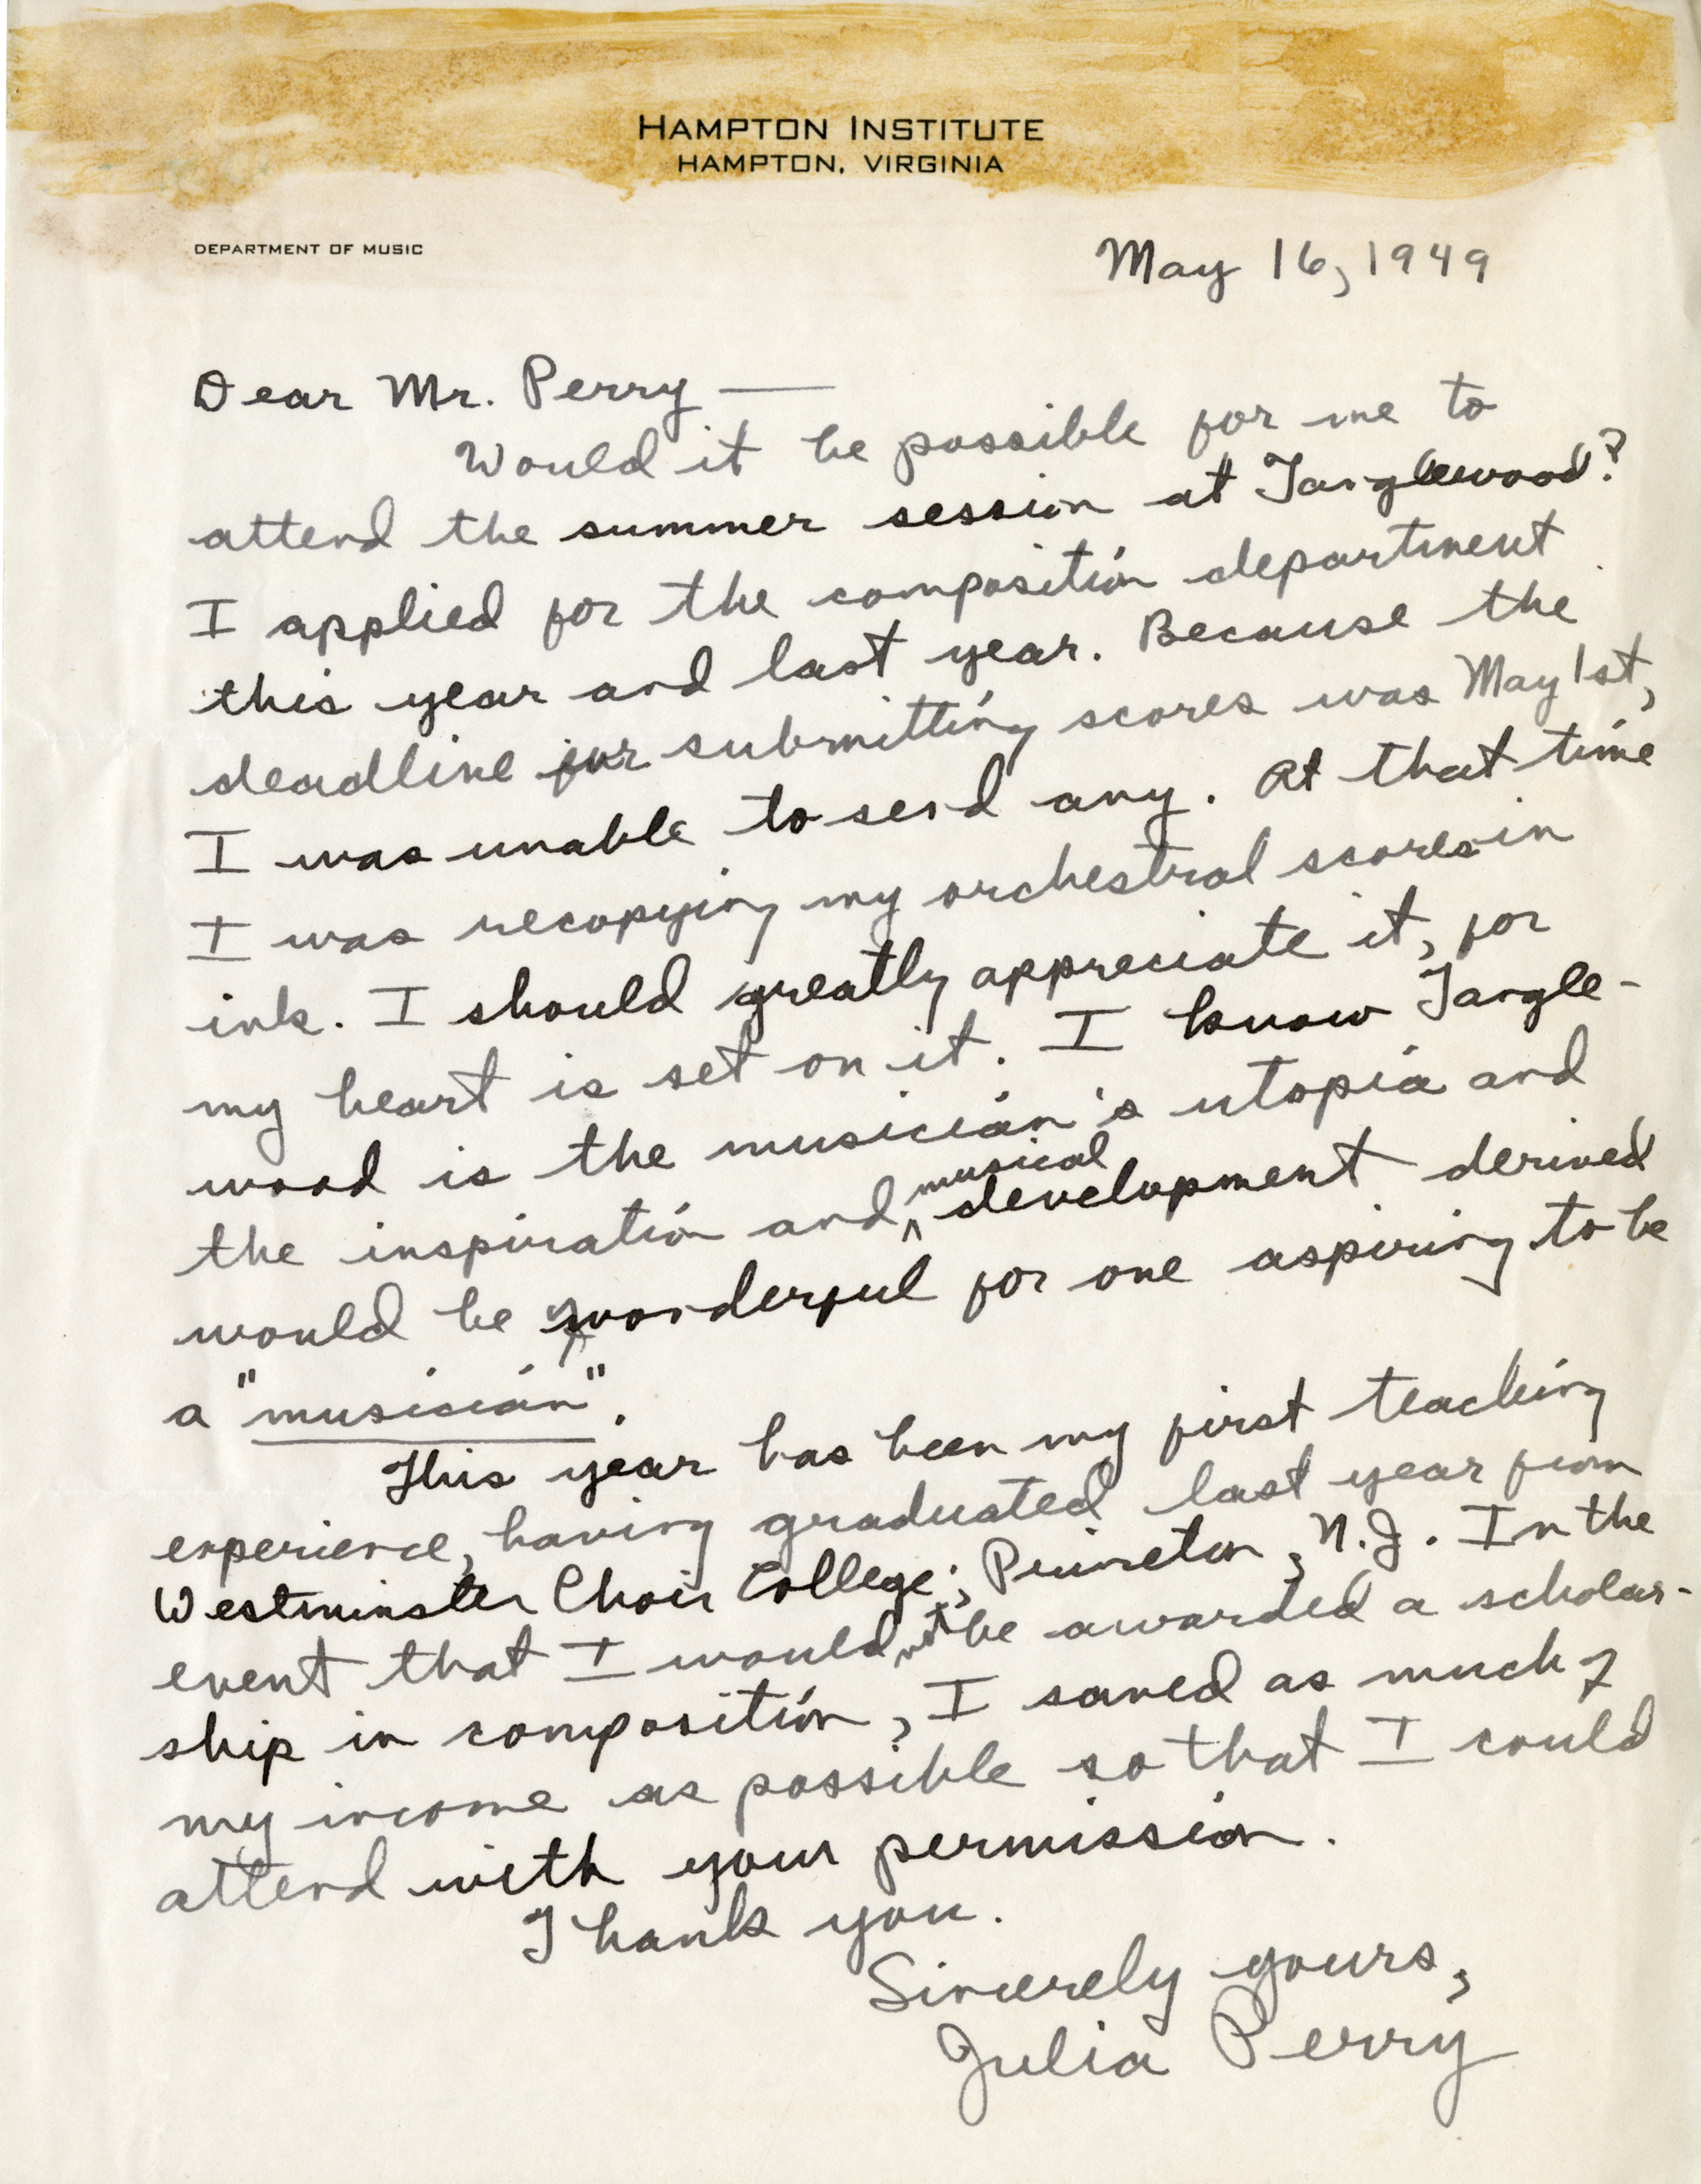 HAMPTON INSTITUTE
HAMPTON, VIRGINIA
DEPARTMENT OF MUSIC
May 16, 1949
Dear Mr. Perry —
Would it be possible for me to
attend the summer session at Tanglewood?
I applied for the composition department
this year and last year. Because the
deadline for submitting scores was May 1st,
I was unable to send any. At that time
I was recopying my orchestral scores in
ink. I should greatly appreciate it, for
my heart is set on it. I know Tangle-
wood is the musician's utopia and
the inspiration and musical development derived
would be wonderful for one aspiring to be
a "musician".
This year has been my first teaching
experience, having graduated last year from
Westminster Choir College, Princeton, N.J. In the
event that I would not be awarded a scholar-
ship in composition, I saved as much of
my income as possible so that I could
attend with your permission.
Thank you.
Sincerely yours,
Julia Perry